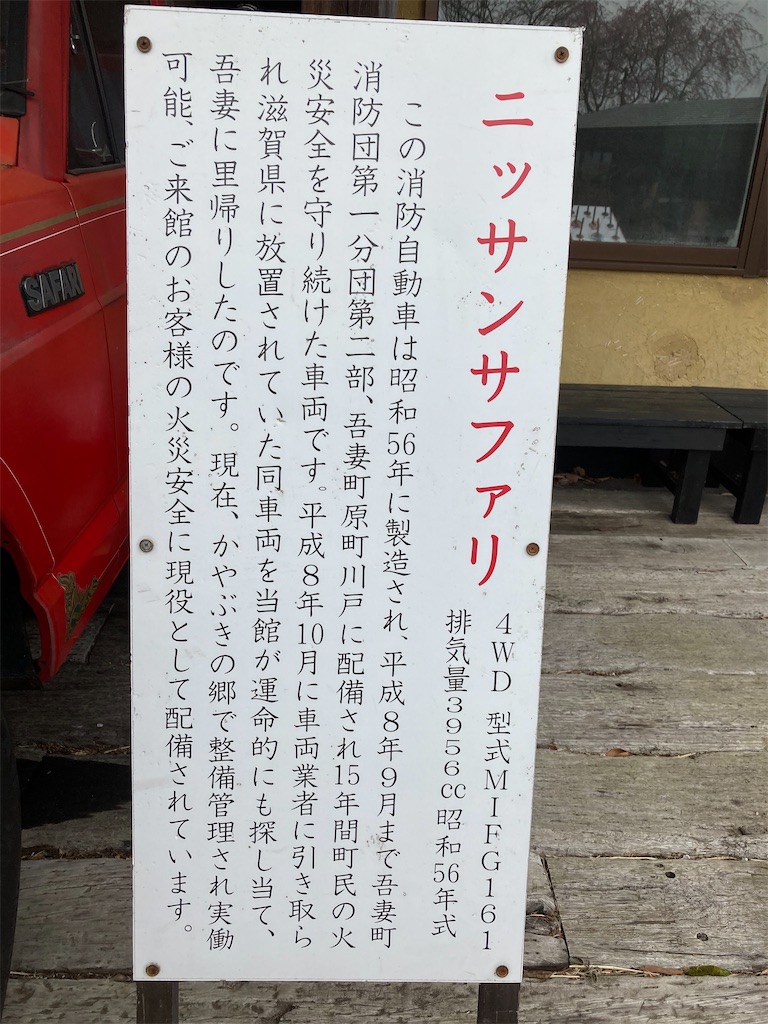 ニッサンサファリ
4WD 型式MIFG161
排気量3956cc昭和56年式
この消防自動車は昭和56年に製造され、平成8年9月まで吾妻町
消防団第一分団第二部、吾妻町原町川戸に配備され15年間町民の火
災安全を守り続けた車両です。平成8年10月に車両業者に引き取ら
れ滋賀県に放置されていた同車両を当館が運命的にも探し当て、
吾妻に里帰りしたのです。現在、かやぶきの郷で整備管理され実働
可能、ご来館のお客様の火災安全に現役として配備されています。
SAFARI